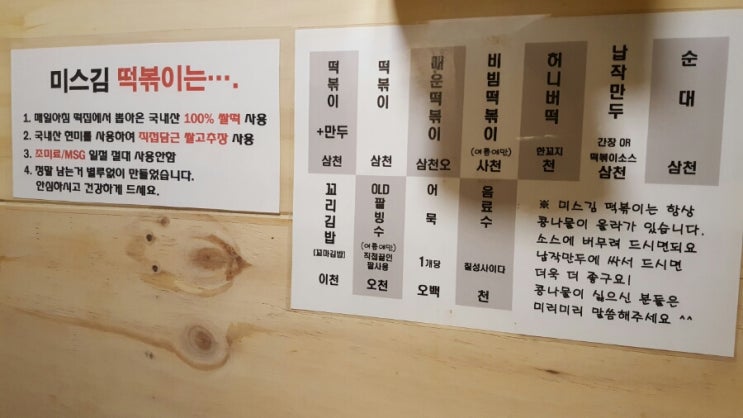 미스김 떡볶이는….
1. 매일아침 떡집에서 뽑아온 국내산 100% 쌀떡 사용
2. 국내산 현미를 사용하여 직접담근 쌀고추장 사용
3. 조미료/MSG 일절 절대 사용안함
4. 정말 남는거 별루없이 만들었습니다.
안심하시고 건강하게 드세요.
떡볶이
+만두
삼천
떡볶이
삼천
매운떡볶이
삼천오
비빔떡볶이
(여름에만)
사천
허니버떡
한꼬지
천
납작만두
간장 OR
떡볶이소스
삼천
순대
삼천
꼬리김밥
(꼬마김밥)
이천
OLD
팥빙수
(여름에만)
직접끓인
팥사용
오천
어묵
1개당
오백
음료수
칠성사이다
천
※ 미스김 떡볶이는 항상
콩나물이 올라가 있습니다.
소스에 버무려 드시면되요
납작만두에 싸서 드시면
더욱 더 좋구요!
콩나물이 싫으신 분들은
미리미리 말씀해주세요 ^^